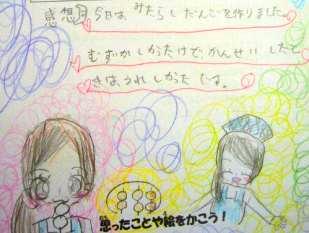 感想 今日は、みたらしだんごを作りました。
むずかしかったけで、かんせいしたと
きは、うれしかったです。
思ったことや絵をかこう！